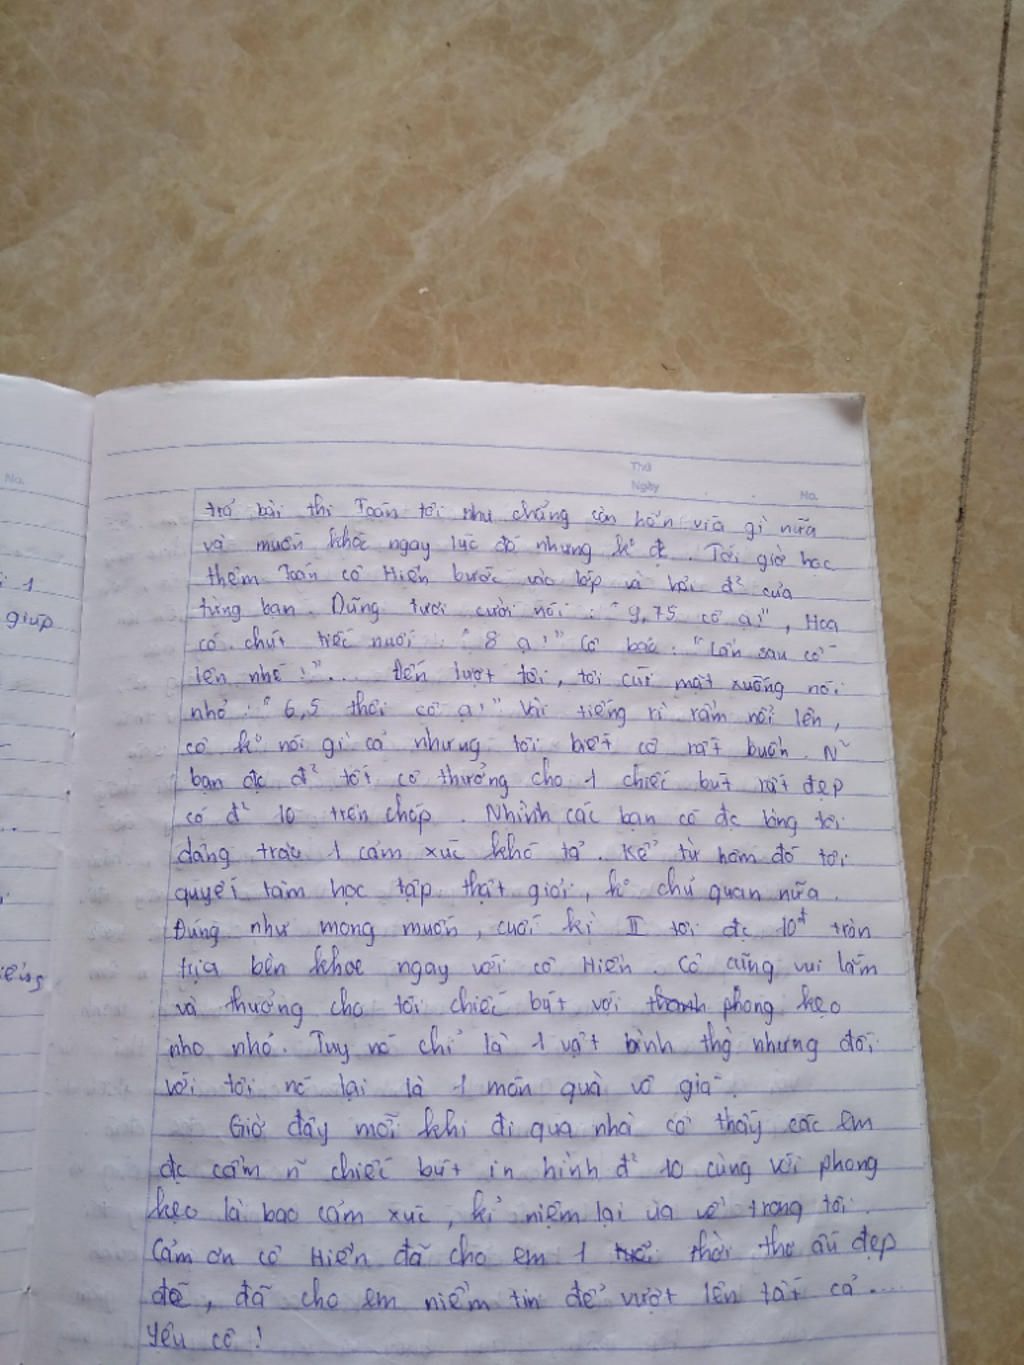 Thứ
Ngày
No.
No.
trả bài thi Toán tôi như chẳng còn hồn vía gì nữa
và muốn khóc ngay lúc đó nhưng k° đc. Tới giờ học
thêm Toán cô Hiền bước vào lớp và hỏi đ² của
từng bạn. Dũng tươi cười nói : "9,75 cô ạ!", Hoa
có chút tiếc nuối : "8 ạ!" Cô bảo : "Lần sau cố
lên nhé!".... Đến lượt tôi, tôi cúi mặt xuống nói
nhỏ : "6,5 thôi cô ạ!" Vài tiếng rì rầm nổi lên,
cô k° nói gì cả nhưng tôi biết cô rất buồn. N~
bạn đc đ² tốt cô thưởng cho 1 chiếc bút rất đẹp
có đ² 10 trên chóp. Nhình các bạn có đc lòng tôi
dâng trào 1 cảm xúc khó tả. Kể từ hôm đó tôi
quyết tâm học tập thật giỏi, k° chủ quan nữa.
Đúng như mong muốn, cuối kì II tôi đc 10đ tròn
trịa bèn khoe ngay với cô Hiền. Cô cũng vui lắm
và thưởng cho tôi chiếc bút với thanh phong kẹo
nho nhỏ. Tuy nó chỉ là 1 vật bình thg nhưng đối
với tôi nó lại là 1 món quà vô giá.
Giờ đây mỗi khi đi qua nhà cô thấy các em
đc cầm n~ chiếc bút in hình đ² 10 cùng với phong
kẹo là bao cảm xúc, kỉ niệm lại ùa về trong tôi.
Cảm ơn cô Hiền đã cho em 1 tuổi thời thơ ấu đẹp
đẽ, đã cho em niềm tin để vượt lên tất cả....
Yêu cô!
1
giúp